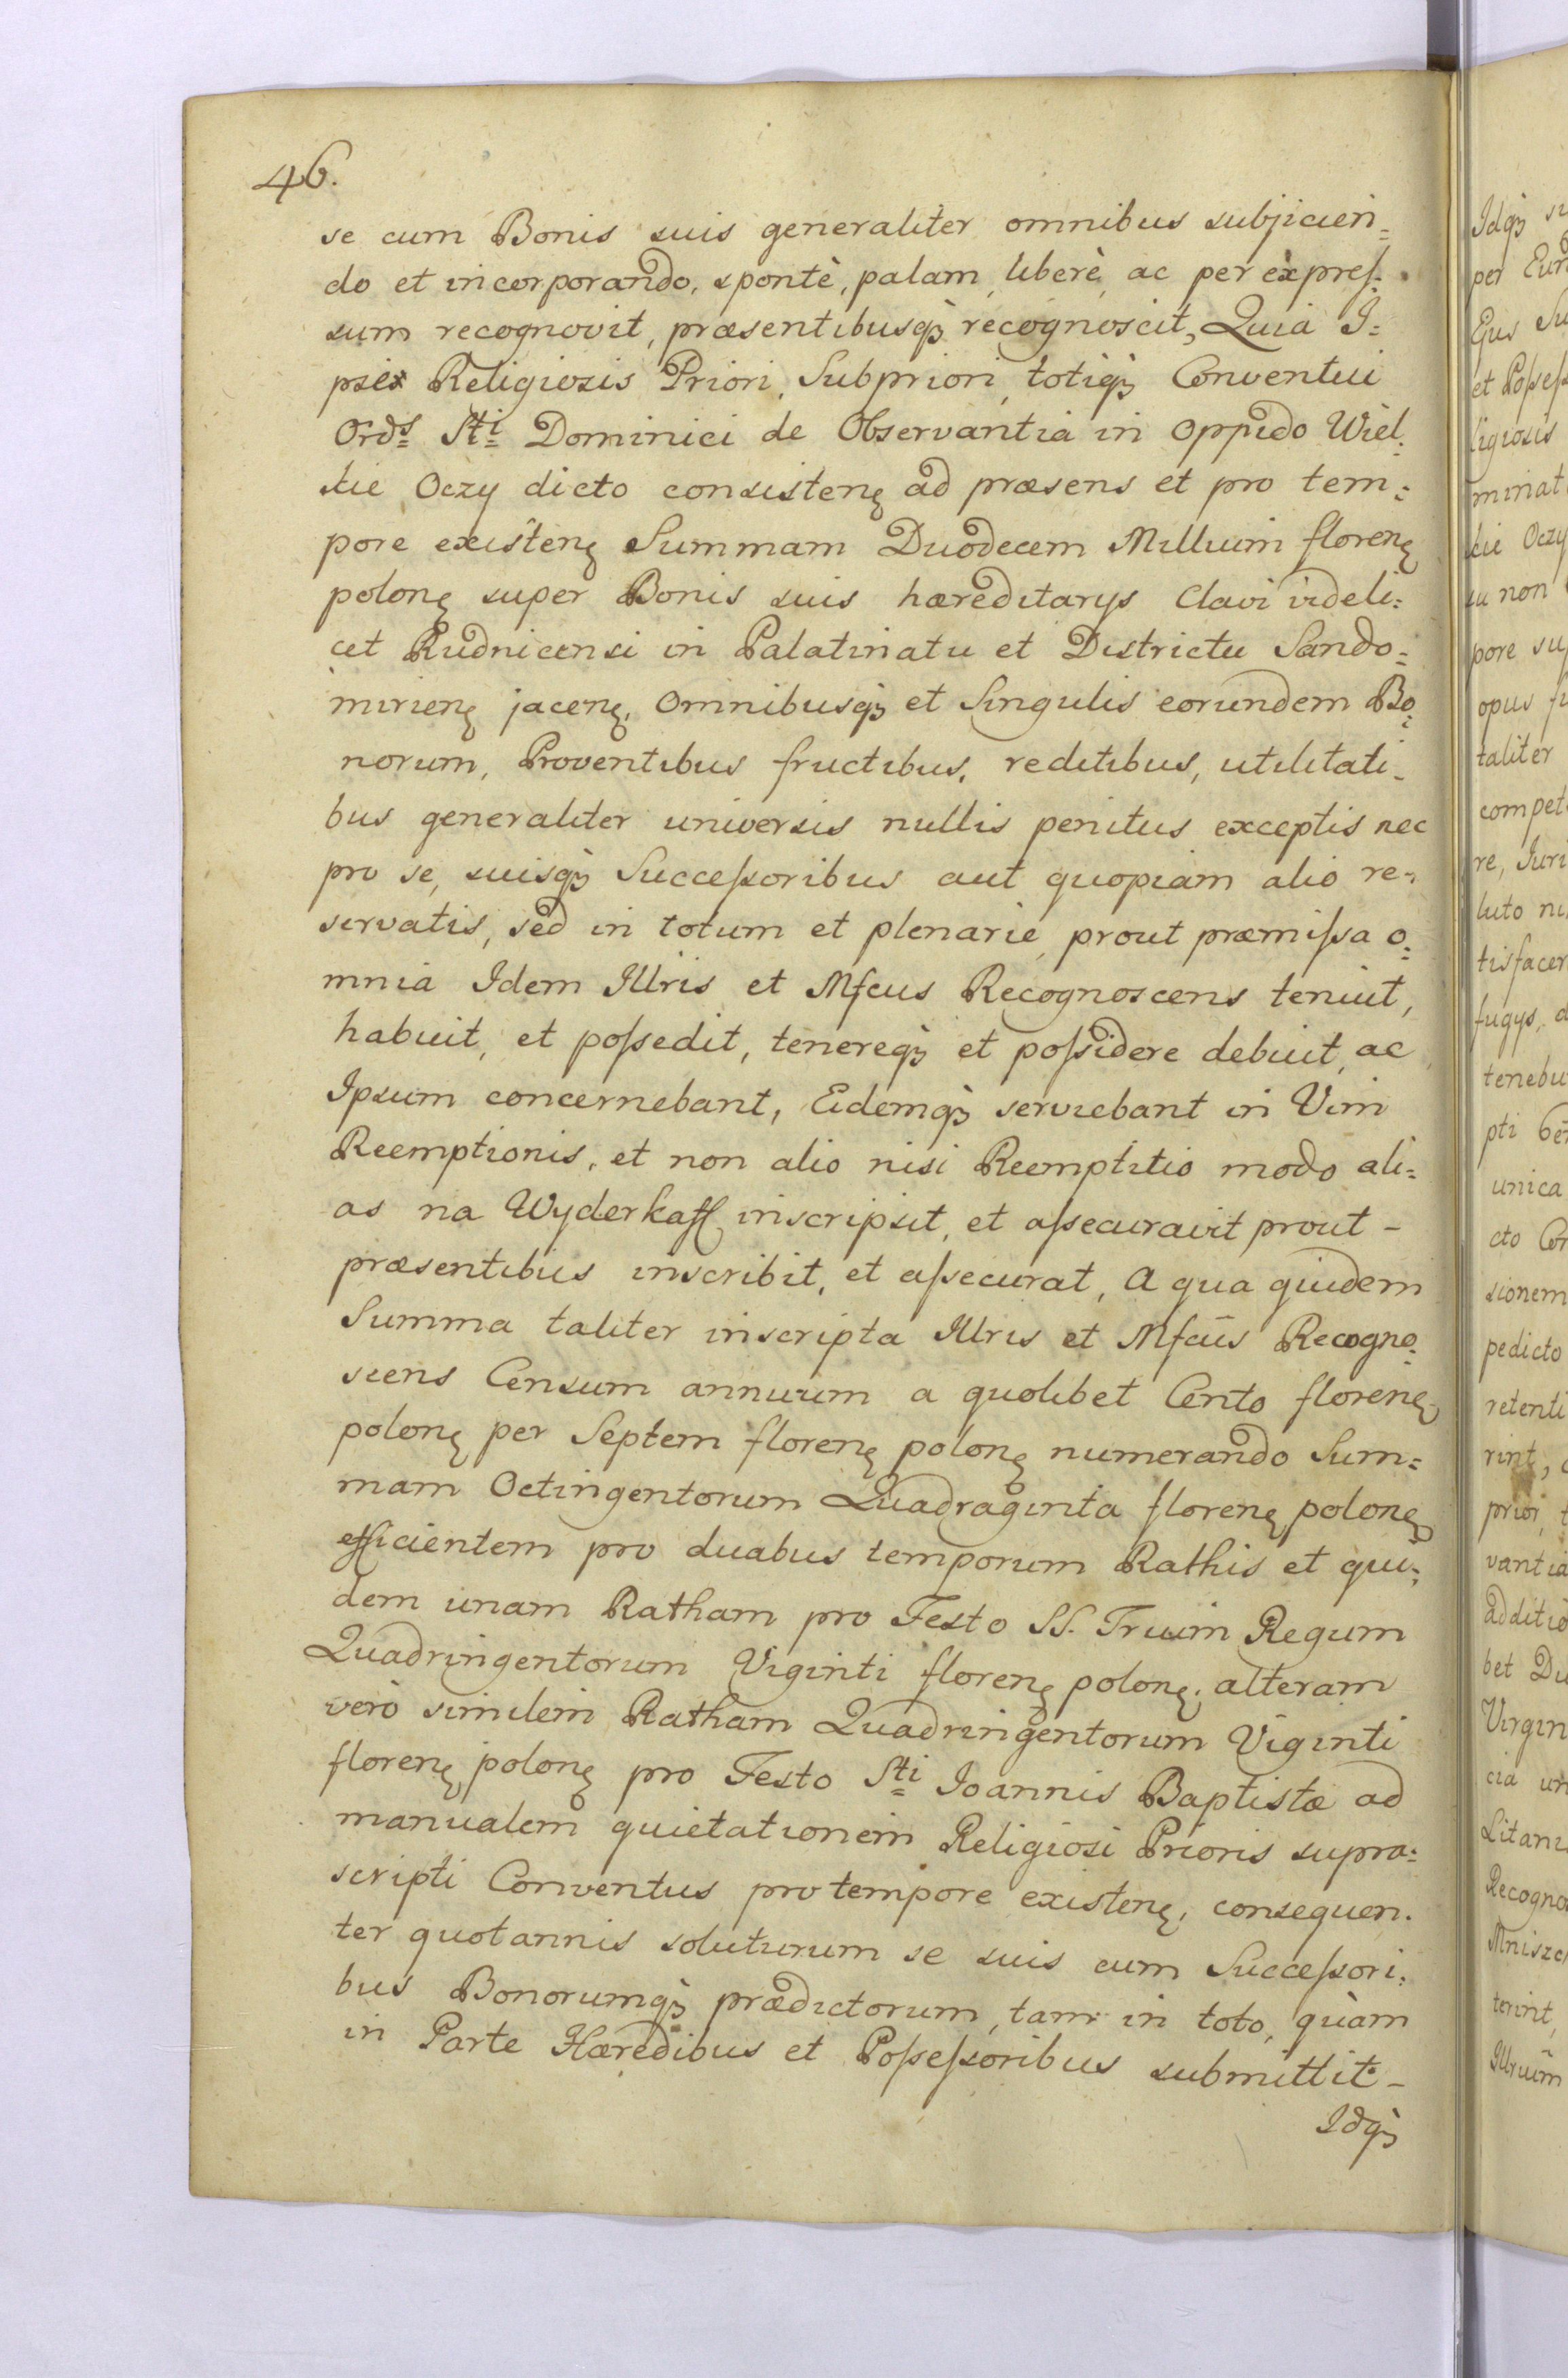 46.
se cum Bonis suis generaliter omnibus subjicien=
do et incorporando, spontè, palam, liberè, ac per expreſ=
sum recognovit, præsentibusqꝫ recognoscit, Quia I=
psis Religiosis Priori, Subpriori, totiqꝫ Conventui
Ordˢ Sti Dominici de Observantia in Oppido Wiel=
kie Oczy dicto consistenꝭ ad præsens et pro tem=
pore existenꝭ Summam Duodecem Millium florenꝭ
polonꝭ super Bonis suis hæreditarys Clavi videli=
cet Rudnicensi in Palatinatu et Districtu Sando=
mirienꝭ jacenꝭ, Omnibusqꝫ et Singulis eorundem Bo=
norum, Proventibus fructibus, reditibus, utilitati=
bus generaliter universis nullis penitus exceptis nec
pro se, suisqꝫ Succeſsoribus aut quopiam alio re=
servatis, sed in totum et plenarie, prout præmiſsa o=
mnia Idem Illris et Mfcus Recognoscens tenuit,
habuit, et poſsedit, tenereqꝫ et poſsidere debuit, ac
Ipsum concernebant, Eidemqꝫ serviebant in Vim
Reemptionis, et non alio nisi Reemptitio modo ali=
as na Wyderkaff inscripsit, et aſsecuravit prout -
præsentibus inscribit, et aſsecurat, A qua quidem
Summa taliter inscripta Illris et Mfcus Recogno=
scens Censum annuum a quolibet Cento florenꝭ
polonꝭ per Septem florenꝭ polonꝭ numerando Sum=
mam Octingentorum Quadraginta florenꝭ polonꝭ
efficientem pro duabus temporum Rathis et qui=
dem unam Ratham pro Festo SS. Trium Regum
Quadringentorum Viginti florenꝭ polonꝭ, alteram
verò similem Ratham Quadringentorum Viginti
florenꝭ polonꝭ pro Festo Sti Joannis Baptistæ ad
manualem quietationem Religiosi Prioris supra=
scripti Conventus pro tempore existenꝭ, consequen=
ter quotannis soluturum se suis cum Succeſsori=
bus Bonorumqꝫ prædictorum, tam in toto, quàm
in Parte Hæredibus et Poſseſsoribus submittit -
Idqꝫ